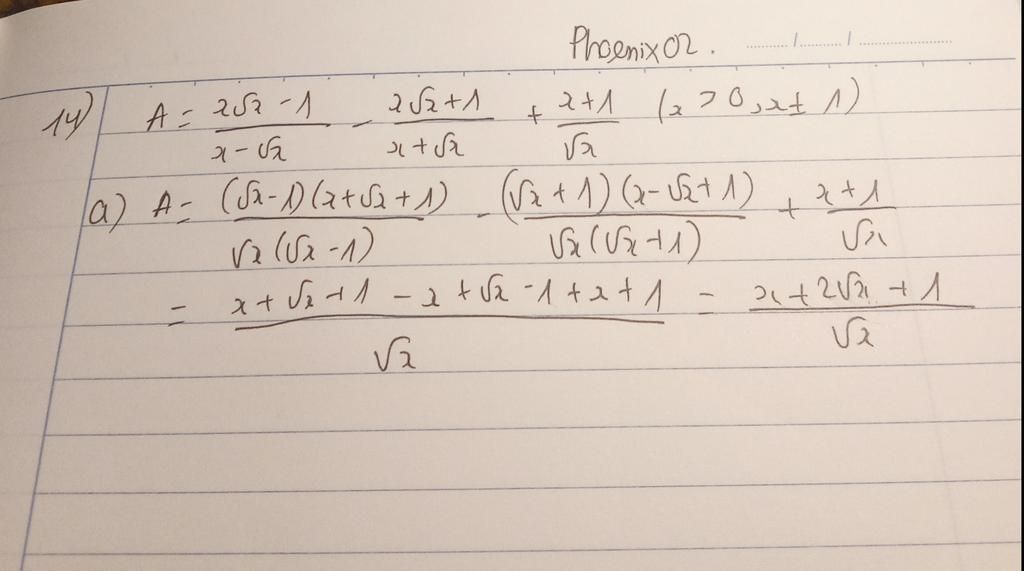 Phoenix02. ......../......../................
14) A = (x√x - 1)/(x - √x) - (x√x + 1)/(x + √x) + (x + 1)/√x (x > 0, x ≠ 1)
a) A = (√x - 1)(x + √x + 1)/√x(√x - 1) - (√x + 1)(x - √x + 1)/√x(√x + 1) + (x + 1)/√x
= (x + √x + 1 - x + √x - 1 + x + 1)/√x = (x + 2√x + 1)/√x